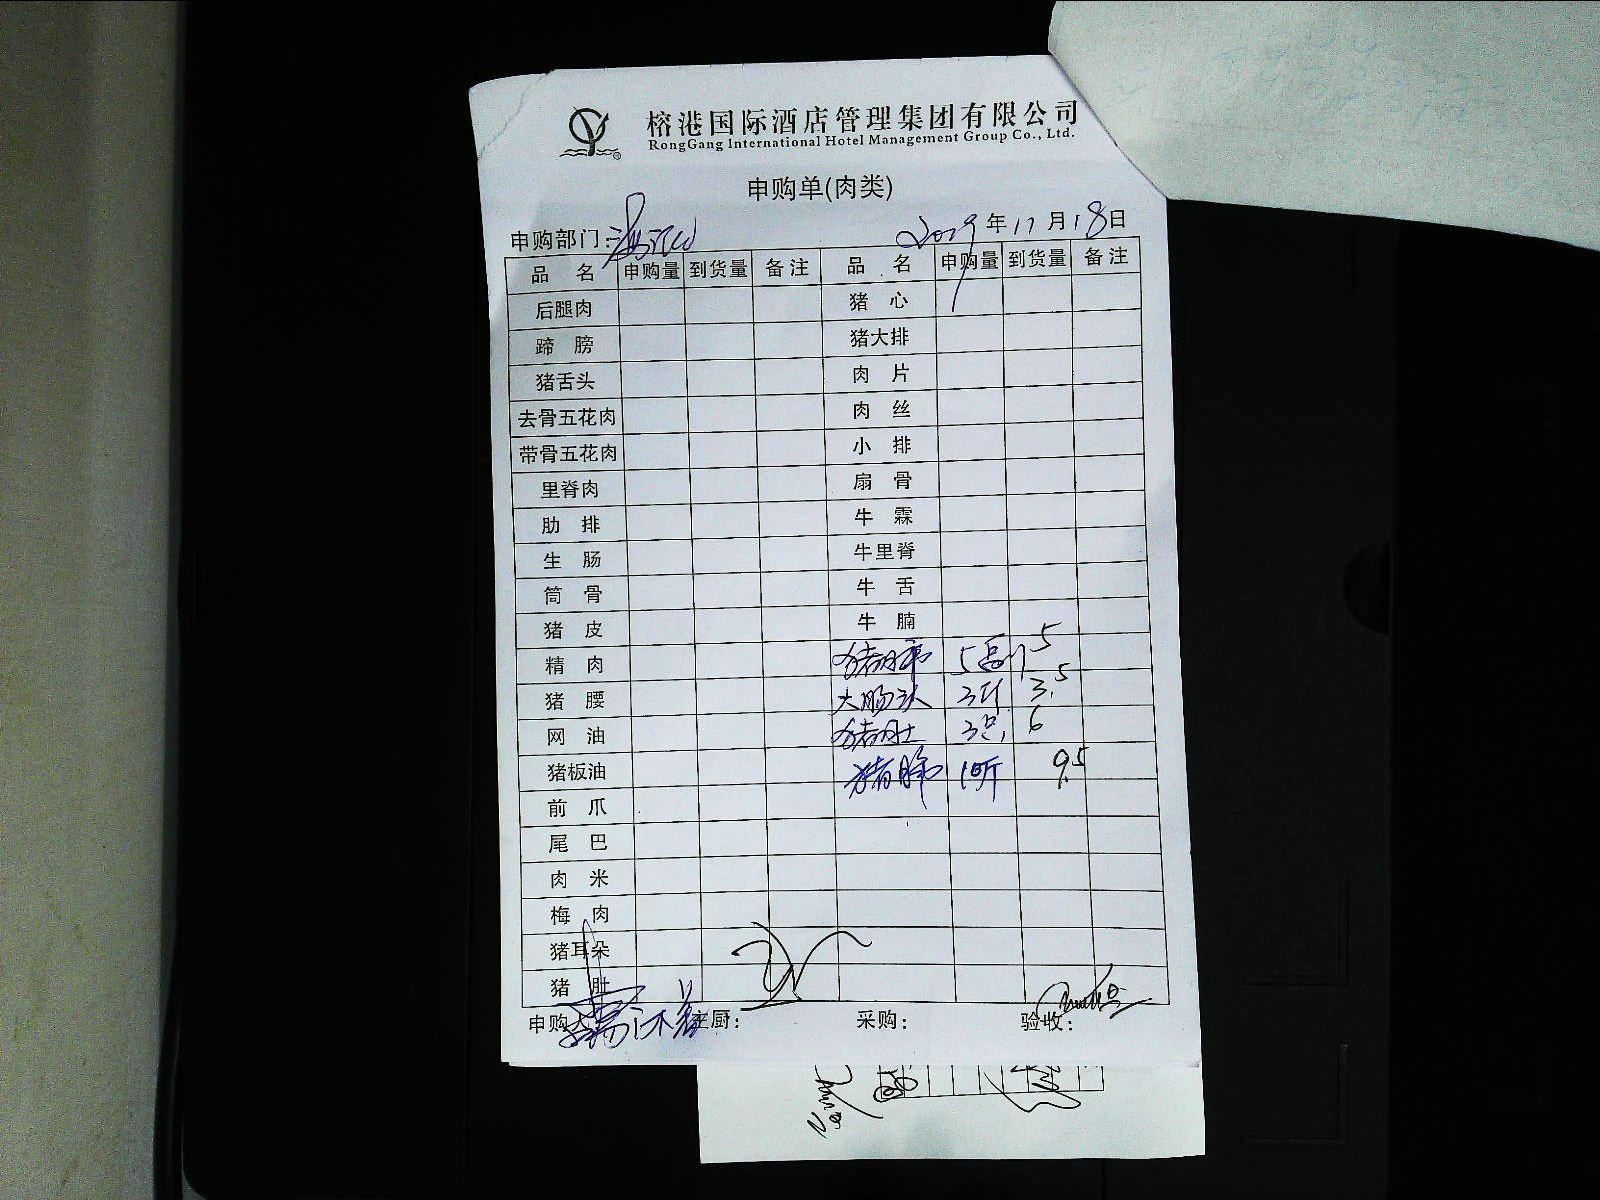 榕港国际酒店管理集团有限公司
RongGang International Hotel Management Group Co., Ltd.
申购单(肉类)
申购部门: 2019年11月18日
品名 申购量 到货量 备注 品名 申购量 到货量 备注
后腿肉 猪心
蹄膀 猪大排
猪舌头 肉片
去骨五花肉 肉丝
带骨五花肉 小排
里脊肉 扇骨
肋排 牛霖
生肠 牛里脊
筒骨 牛舌
猪皮 牛腩
精肉 猪肺 5 5
猪腰 大肠头 3斤 3.5
网油 猪肚 3只 6
猪板油 猪 10斤 9.5
前爪
尾巴
肉米
梅肉
猪耳朵
猪肚
申购人 主厨: 采购: 验收: